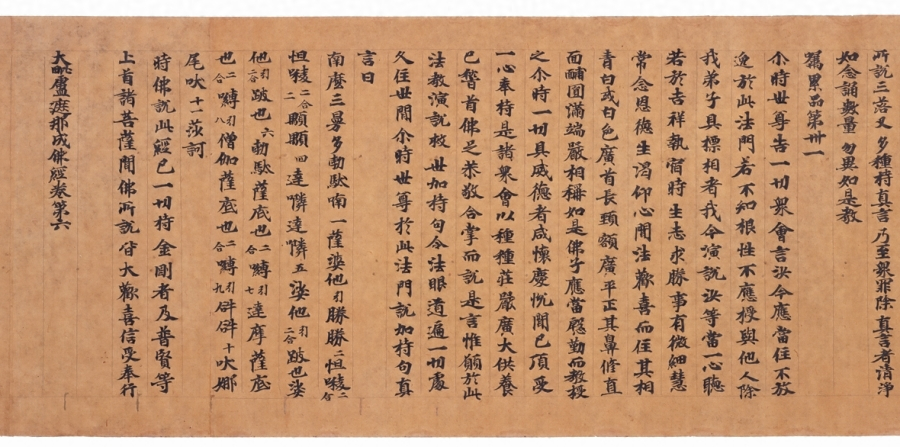 所說三落叉 多種持真言 乃至衆罪除 真言者清淨
如念誦數量 勿異如是教
囑累品第卅一
尒時世尊告一切衆會言汝今應當住不放
逸於此法門若不知根性不應授與他人除
我弟子具摽相者我今演說汝等當一心聽
若於吉祥執宿時生志求勝事有微細慧
常念恩德生渴仰心聞法歡喜而住其相
青白或白色廣首長頸額廣平正其鼻脩直
面酺圓滿端嚴相稱如是佛子應當慇勤而教授
之尒時一切具威德者咸懷慶悅聞已頂受
一心奉持是諸衆會以種種莊嚴廣大供養
已䭬首佛足恭敬合掌而說是言惟願於此
法教演說救世加持句令法眼道遍一切處
久住世間尒時世尊於此法門說加持句真
言曰
南麽三曼多勃馱喃一薩婆他引勝勝二怛㘑二合
怛㘑二合二顒顒四達㗚達㗚五娑他引二合跛也娑
他引二合跛也六勃馱薩底也二合嚩引七達摩薩底
也二合嚩引八僧伽薩底也二合嚩引九㕧㕧十吠娜
尾吠十一莎訶
時佛說此經已一切持金剛者及普賢等
上首諸菩薩聞佛所說皆大歡喜信受奉行
大毗盧遮那成佛經卷第六